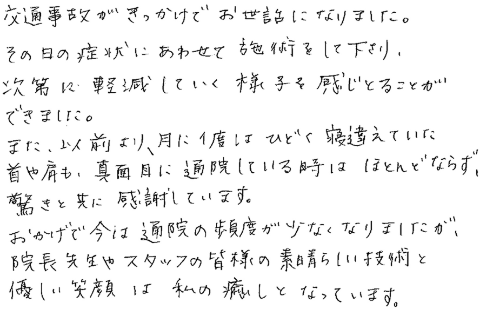 交通事故がきっかけでお世話になりました。
その日の症状にあわせて施術をして下さり、
次第に軽減していく様子を感じとることが
できました。
また、以前より、月に1度はひどく寝違えていた
首や肩も、真面目に通院している時はほとんどならず、
驚きと共に感謝しています。
おかげで今は通院の頻度が少なくなりましたが、
院長先生やスタッフの皆様の素晴らしい技術と
優しい笑顔は私の癒しとなっています。